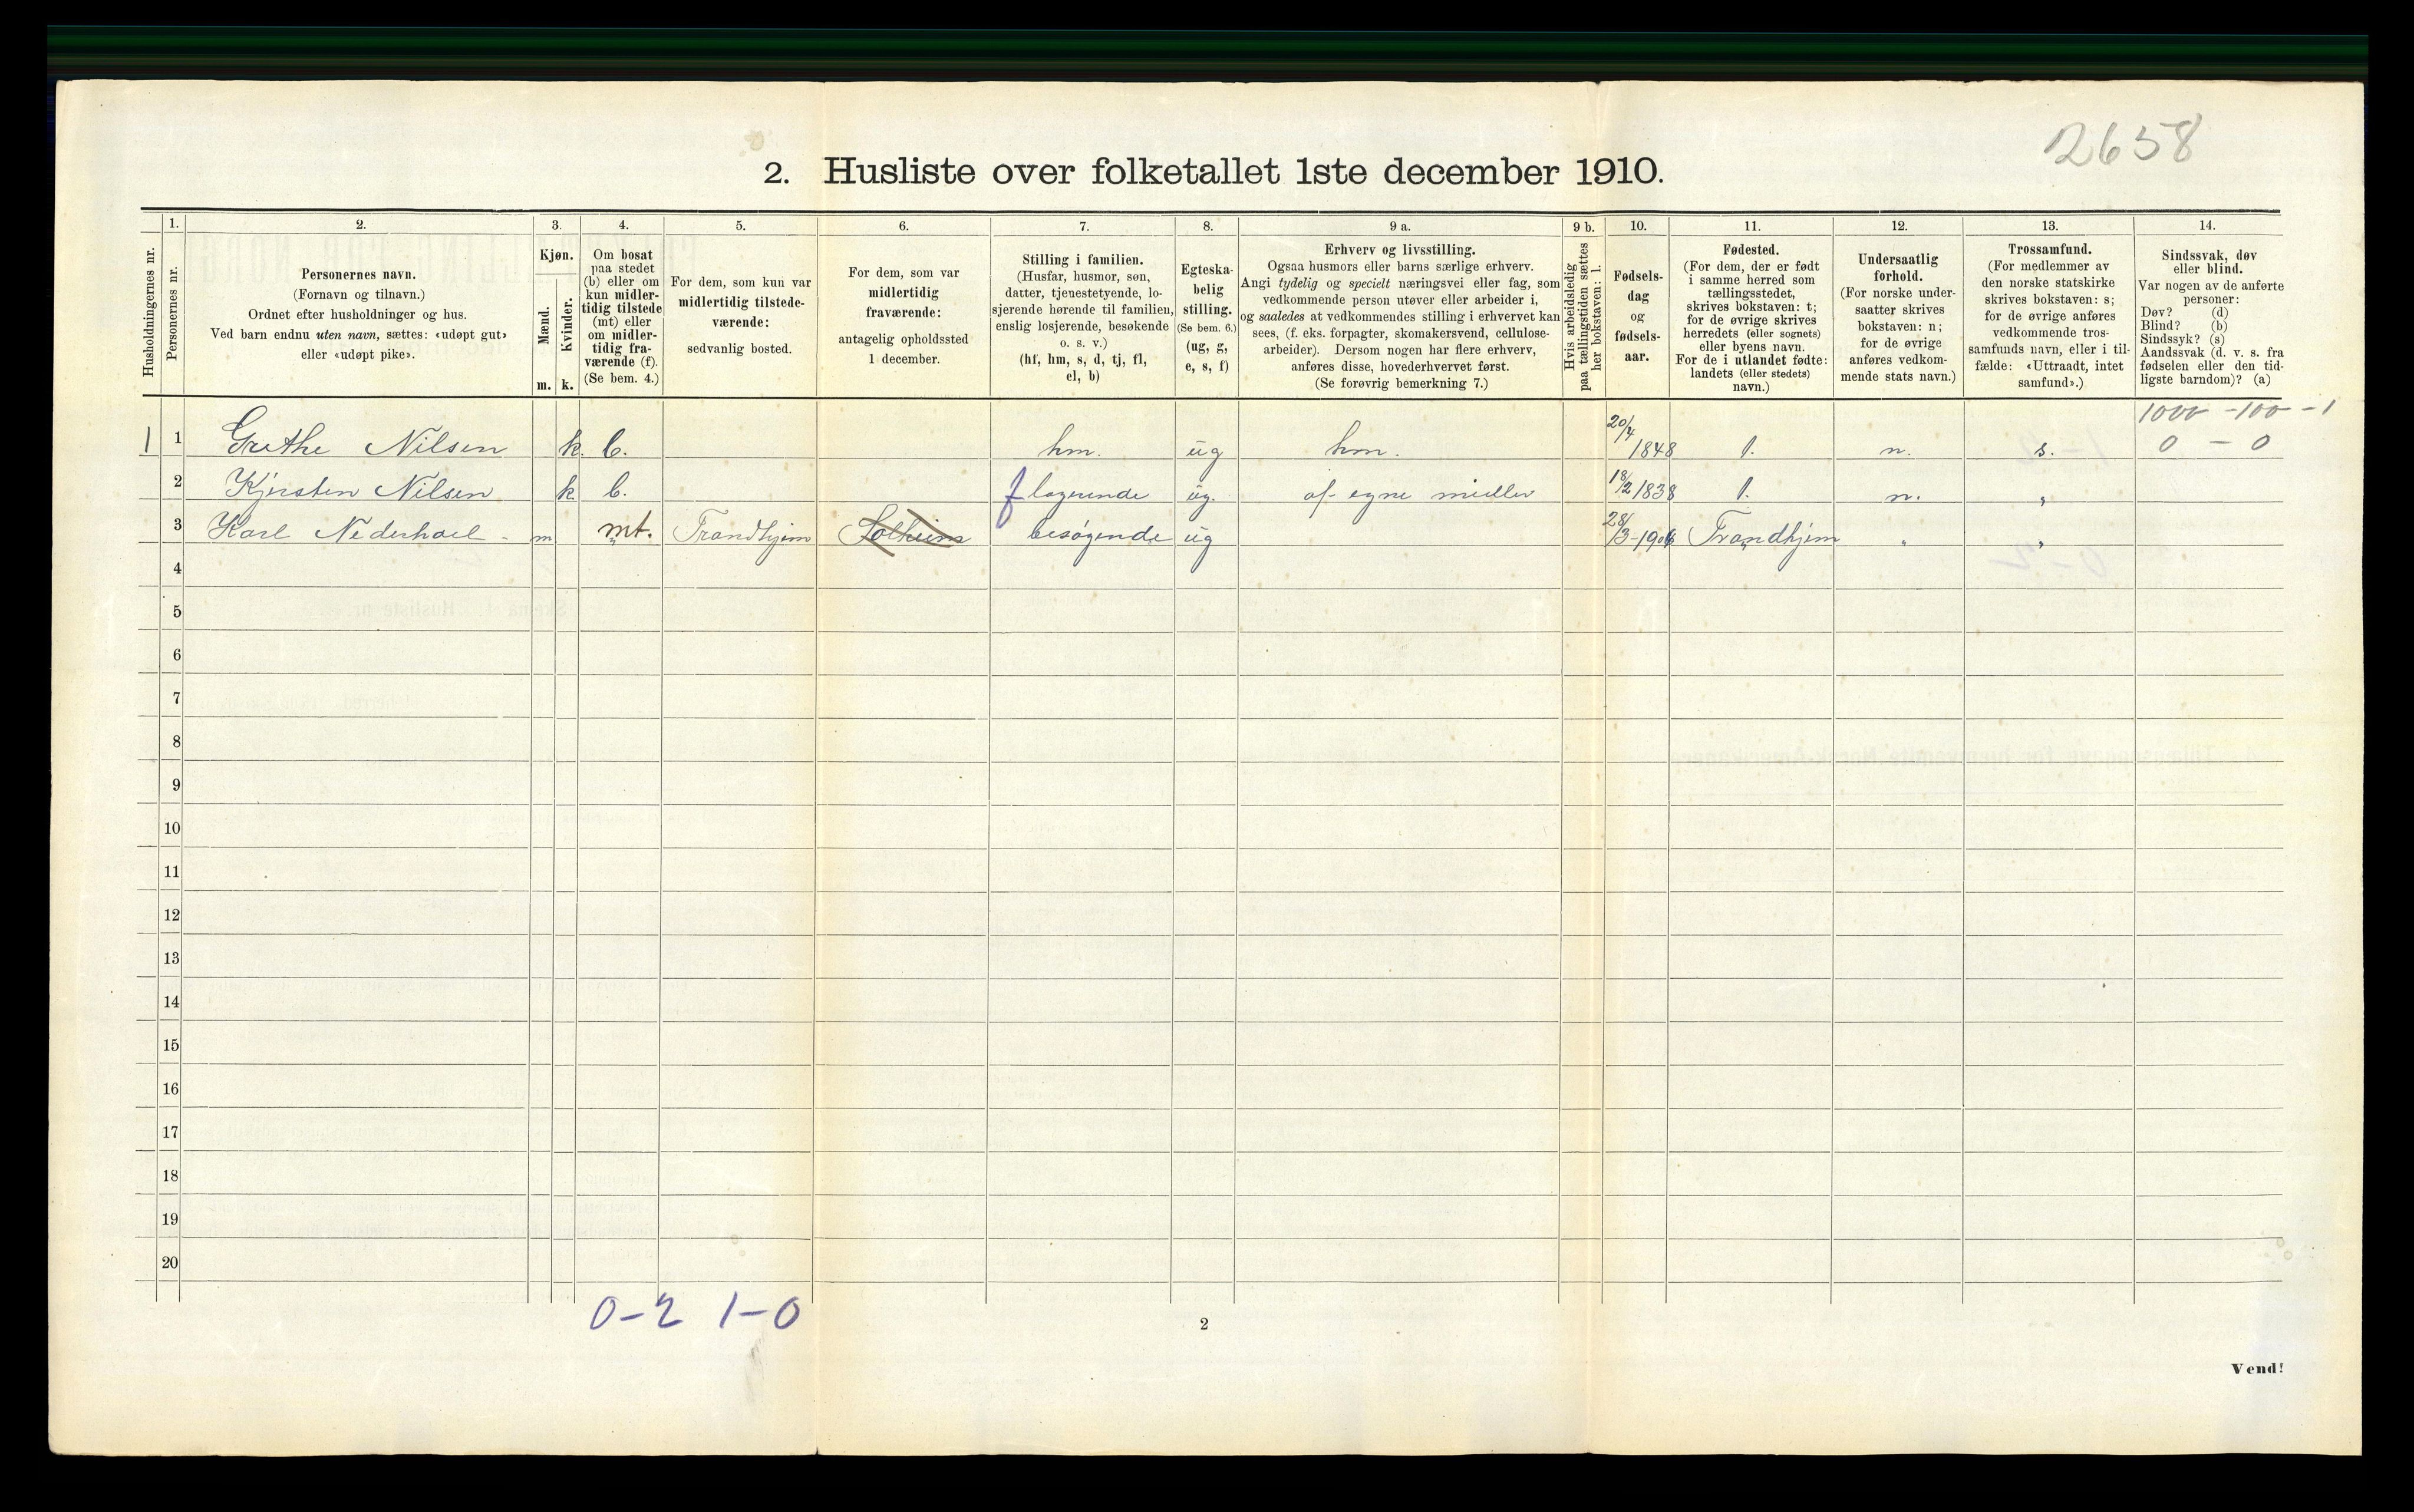 2658
2. Husliste over folketallet 1ste december 1910.
Husholdningernes nr.
1.
Personernes nr.
2.
Personernes navn.
(Fornavn og tilnavn.)
Ordnet efter husholdninger og hus.
Ved barn endnu uten navn, sættes: «udøpt gut»
eller «udøpt pike».
3.
Kjøn.
Mænd.
m.
Kvinder.
k.
4.
Om bosat
paa stedet
(b) eller om
kun midler-
tidig tilstede
(mt) eller
om midler-
tidig fra-
værende (f).
(Se bem. 4.)
5.
For dem, som kun var
midlertidig tilstede-
værende:
sedvanlig bosted.
6.
For dem, som var
midlertidig
fraværende:
antagelig opholdssted
1 december.
7.
Stilling i familien.
(Husfar, husmor, søn,
datter, tjenestetyende, lo-
sjerende hørende til familien,
enslig losjerende, besøkende
o. s. v.)
(hf, hm, s, d, tj, fl,
el, b)
8.
Egteska-
belig
stilling.
(Se bem. 6.)
(ug, g,
e, s, f)
9 a.
Erhverv og livsstilling.
Ogsaa husmors eller barns særlige erhverv.
Angi tydelig og specielt næringsvei eller fag, som
vedkommende person utøver eller arbeider i,
og saaledes at vedkommendes stilling i erhvervet kan
sees, (f. eks. forpagter, skomakersvend, cellulose-
arbeider). Dersom nogen har flere erhverv,
anføres disse, hovederhvervet først.
(Se forøvrig bemerkning 7.)
9 b.
Hvis arbeidsledig
paa tællingstiden sættes
her bokstaven: l.
10.
Fødsels-
dag
og
fødsels-
aar.
11.
Fødested.
(For dem, der er født
i samme herred som
tællingsstedet,
skrives bokstaven: t;
for de øvrige skrives
herredets (eller sognets)
eller byens navn.
For de i utlandet fødte:
landets (eller stedets)
navn.)
12.
Undersaatlig
forhold.
(For norske under-
saatter skrives
bokstaven: n;
for de øvrige
anføres vedkom-
mende stats navn.)
13.
Trossamfund.
(For medlemmer av
den norske statskirke
skrives bokstaven: s;
for de øvrige anføres
vedkommende tros-
samfunds navn, eller i til-
fælde: «Uttraadt, intet
samfund».)
14.
Sindssvak, døv
eller blind.
Var nogen av de anførte
personer:
Døv? (d)
Blind? (b)
Sindssyk? (s)
Aandssvak (d. v. s. fra
fødselen eller den tid-
ligste barndom)? (a)
1000 - 100 - 1
1 1 Grethe Nilsen k. b. hm. ug hm. 20/4 1848 t. n. s. 0 - 0
2 Kjersten Nilsen k b. f logerende ug. af egne midler 18/2 1838 t. n. "
3 Karl Nederhoel - m mt. Trondhjem Solheim besøgende ug 28/3-1906 Trondhjem " "
4
5
6
7
8
9
10
11
12
13
14
15
16
17
18
19
20
0-2 1-0
2
Vend!